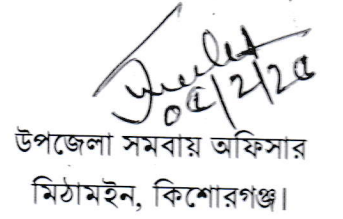 ০৫/২/২৫
উপজেলা সমবায় অফিসার
মিঠামইন, কিশোরগঞ্জ।